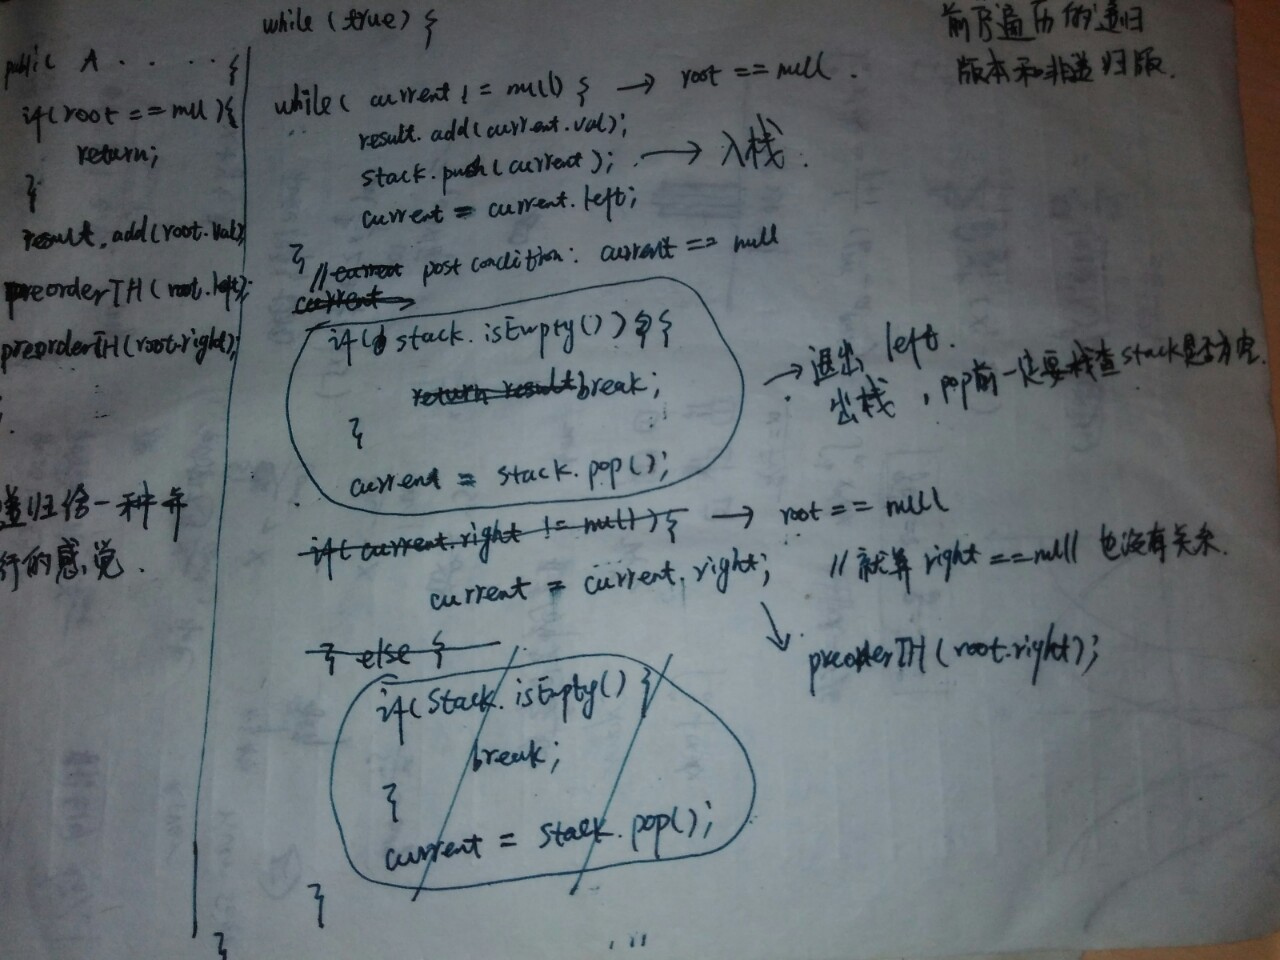 前序遍历的递归
版本和非递归版.
public A . . . . . {
if(root == null){
return;
}
result.add(root.val)
preorderTH(root.left);
preorderTH(root.right);
递归给一种并
行的感觉.
while(true) {
while( current != null) { → root == null.
result.add(current.val);
stack.push(current); → 入栈.
current = current.left;
} // current post condition: current == null
current
if( stack.isEmpty() ) {
return result break;
}
current = stack.pop();
→ 退出 left.
出栈, pop前一定要检查stack是否为空.
if( current.right != null) { → root == null
current = current.right; // 就算 right == null 也没有关系.
preorderTH(root.right);
} else {
if(Stack.isEmpty() {
break;
}
current = stack.pop();
}
}